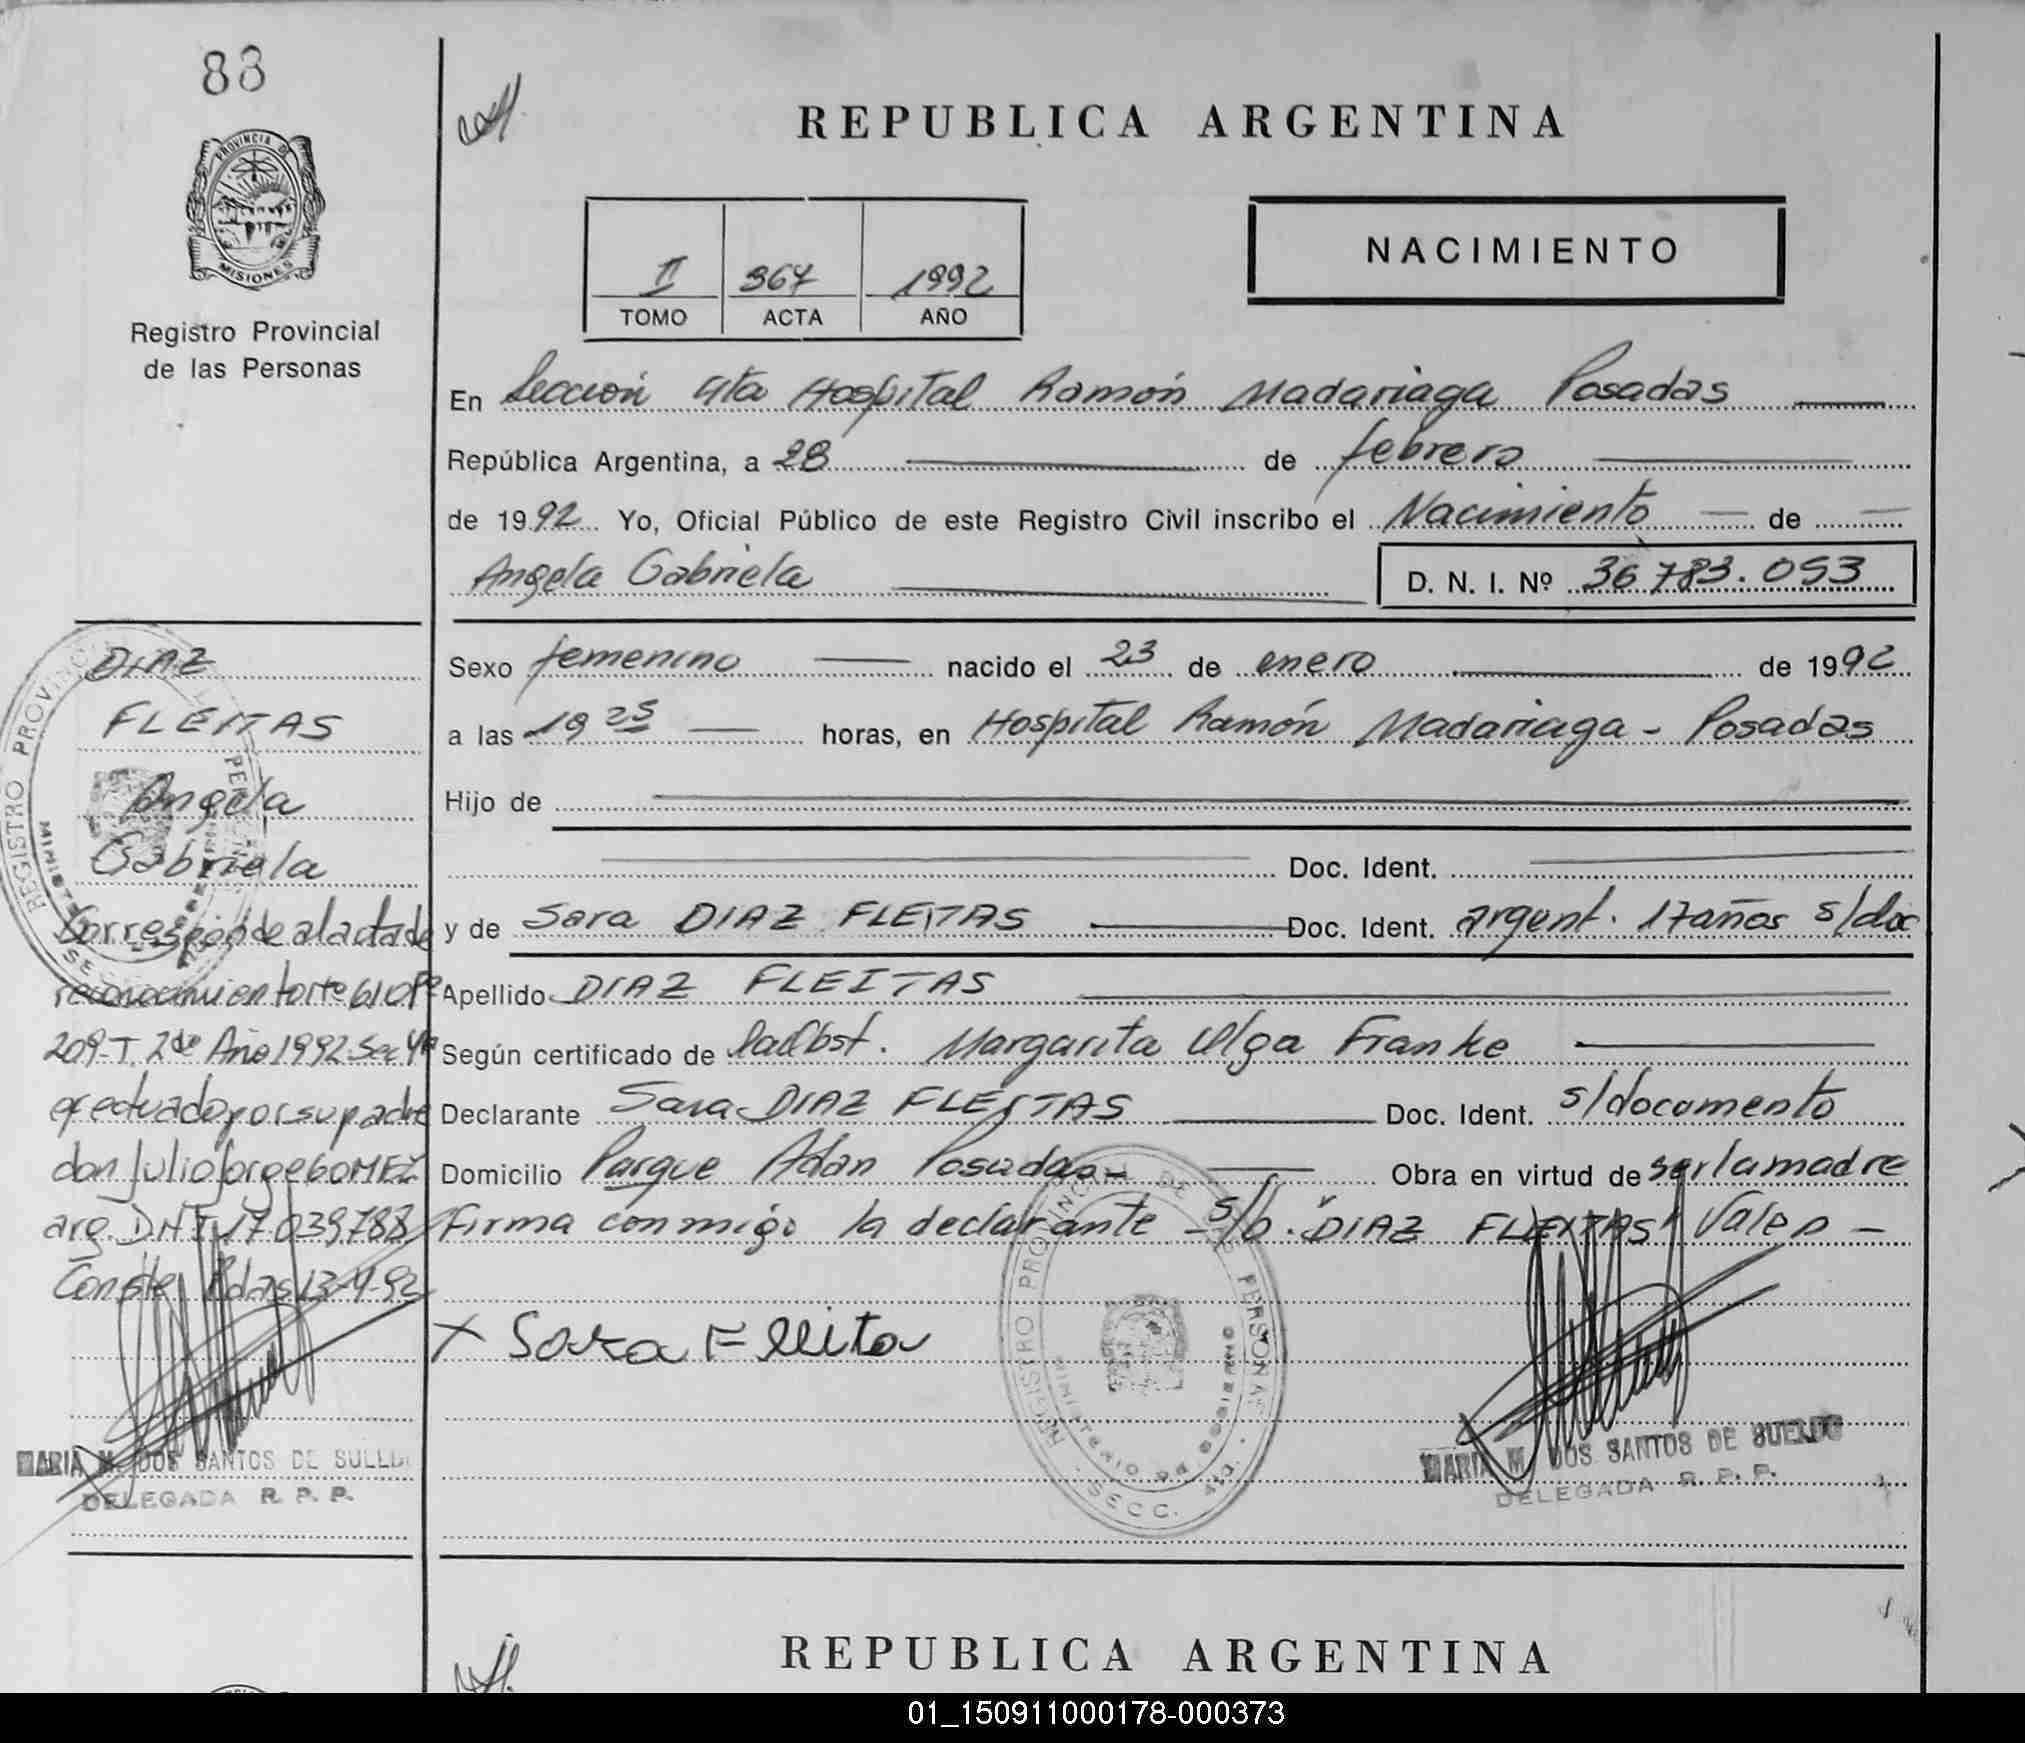 88
PROVINCIA DE
MISIONES
Registro Provincial
de las Personas
REPUBLICA ARGENTINA
II 367 1992
TOMO ACTA AÑO
NACIMIENTO
En Sección 4ta Hospital Ramón Madariaga Posadas
República Argentina, a 28 de febrero
de 1992 Yo, Oficial Público de este Registro Civil inscribo el Nacimiento de
Angela Gabriela D. N. I. Nº 36 783.053
Sexo femenino nacido el 23 de enero de 1992
a las 19 25 horas, en Hospital Ramón Madariaga - Posadas
Hijo de
Doc. Ident.
y de Sara DIAZ FLEITAS Doc. Ident. argent. 17 años s/doc
Apellido DIAZ FLEITAS
Según certificado de Margarita Olga Franke
Declarante Sara DIAZ FLEITAS Doc. Ident. s/documento
Domicilio Parque Adan Posadas- Obra en virtud de ser la madre
Firma conmigo la declarante - s/b. "DIAZ FLEITAS" Valen -
x Sara Fleita
REGISTRO PROVINCIAL DE LAS PERSONAS
MINISTERIO DE GOBIERNO
SECC. 4ta.
MARIA M. DOS SANTOS DE SUELDO
DELEGADA R. P. P.
DIAZ
FLEITAS
Angela
Gabriela
Corresponde al acta de
reconocimiento nte 610 Fº
209-T. 2do Año 1992 Sec 4ta
efectuado por su padre
don Julio Jorge GOMEZ
arg. DNI 17 039.788
Conste Pdas 13-4-92
MARIA M. DOS SANTOS DE SUELDO
DELEGADA R. P. P.
REPUBLICA ARGENTINA
01_150911000178-000373